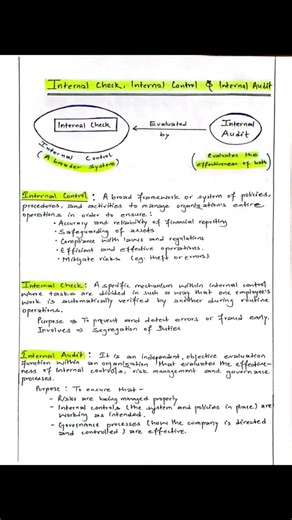 Internal Check, Internal Control & Internal Audit
Internal Check
Internal Control
(A broader System)
Evaluated
by
Internal
Audit
(Evaluates the
effectiveness of both)
Internal Control : A broad framework or system of policies,
procedures, and activities to manage organization's entire
operations in order to ensure :
• Accuracy and reliability of financial reporting
• Safeguarding of assets
• Compliance with laws and regulations
• Efficient and effective operations.
• Mitigate risks (eg. theft or errors)
Internal Check : A specific mechanism within internal control
where tasks are divided in such a way that one employee's
work is automatically verified by another during routine
operations.
Purpose ⇒ To prevent and detect errors or fraud early.
Involves ⇒ Segregation of Duties
Internal Audit : It is an independent, objective evaluation
function within an organization that evaluates the effective-
ness of internal controls, risk management and governance
processes.
Purpose : To ensure that -
- Risks are being managed properly
- Internal controls (the system and policies in place) are
working as intended.
- Governance processes (how the company is directed
and controlled) are effective.